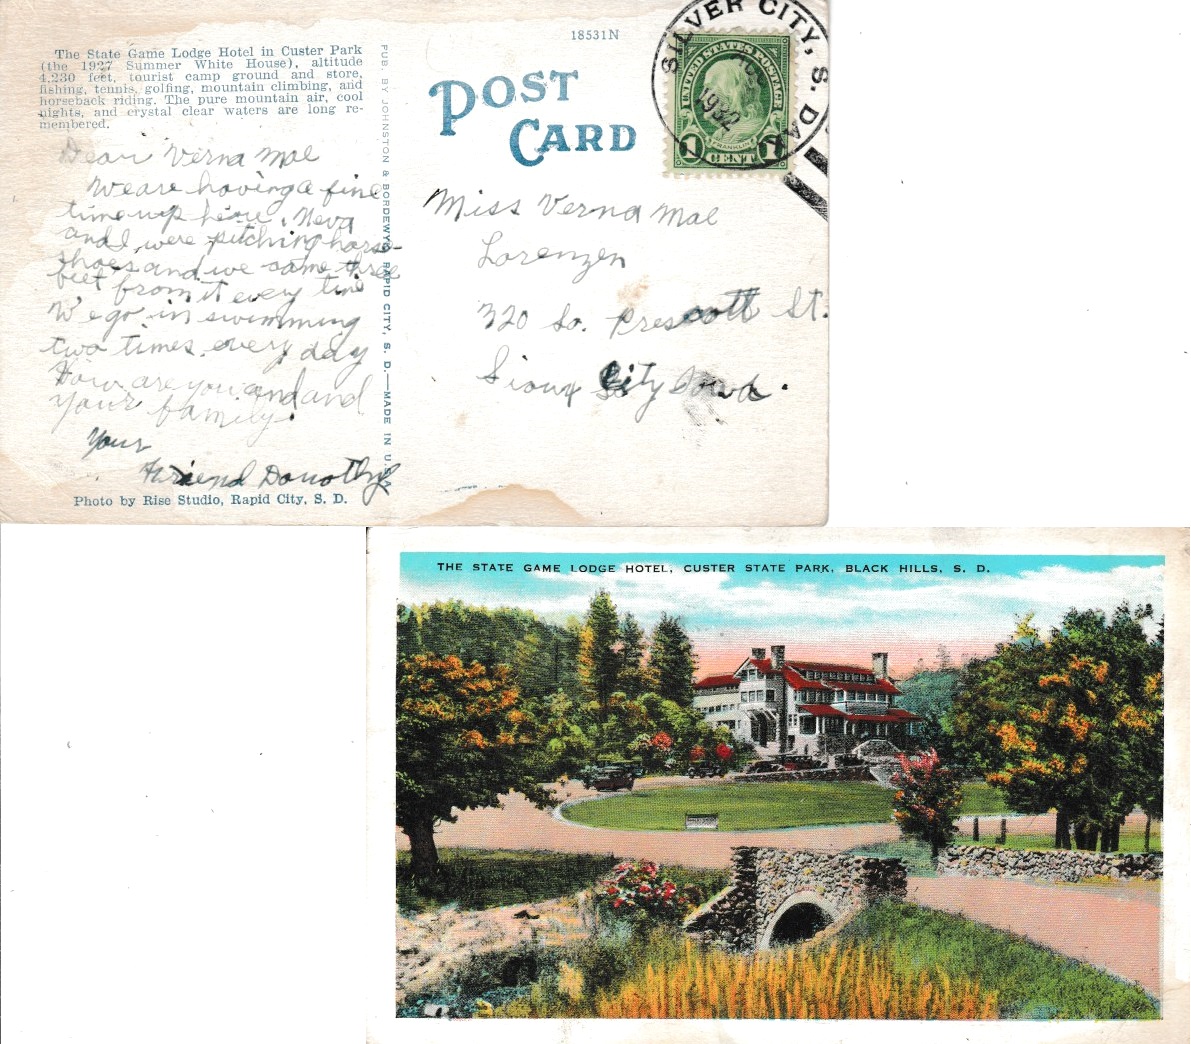 The State Game Lodge Hotel in Custer Park
(the 1927 Summer White House), altitude
4,230 feet, tourist camp ground and store,
fishing, tennis, golfing, mountain climbing, and
horseback riding. The pure mountain air, cool
nights, and crystal clear waters are long re-
membered.
Dear Verna Mae
We are having a fine
time up here. Neva
and I were pitching horse-
shoes and we came three
feet from it every time
We go in swimming
two times every day
How are you and and
your family.
Your
Friend Dorothy
Photo by Rise Studio, Rapid City, S. D.
PUB. BY JOHNSTON & BORDEWYK, RAPID CITY, S. D.—MADE IN U.S.A.
18531N
POST
CARD
SILVER CITY, S. DAK
1932
UNITED STATES POSTAGE
FRANKLIN
1 CENT 1
Miss Verna Mae
Lorenzen
320 So. Prescott St.
Sioux City Iowa.
THE STATE GAME LODGE HOTEL, CUSTER STATE PARK, BLACK HILLS, S. D.